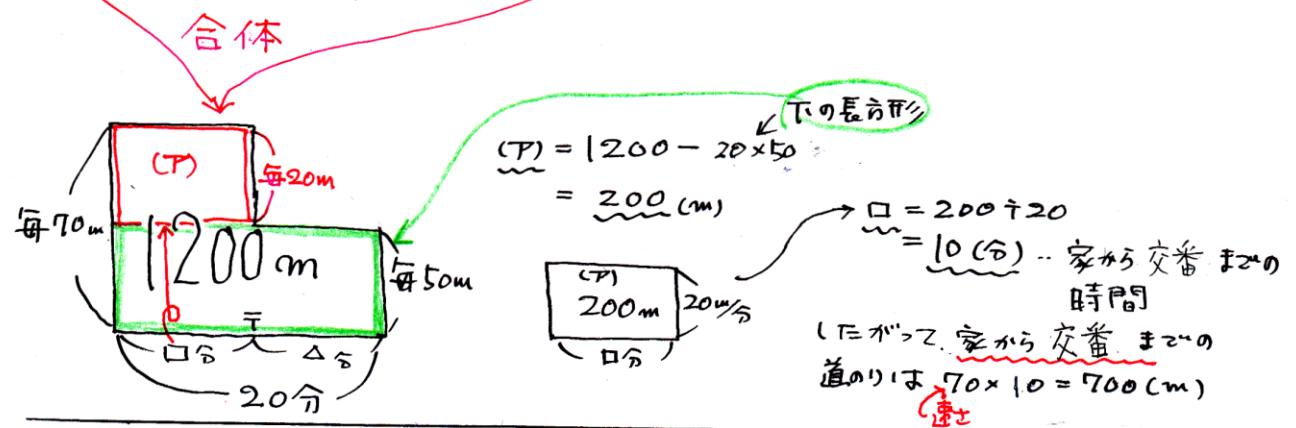 合体
下の長方形
(ア)
毎20m
毎70m
1200m
毎50m
□分 △分
20分
(ア) = 1200 - 20×50
= 200 (m)
(ア)
200m
20m/分
□分
□ = 200÷20
= 10(分) ‥ 家から交番までの
時間
したがって、家から交番までの
道のりは 70×10 = 700(m)
速さ